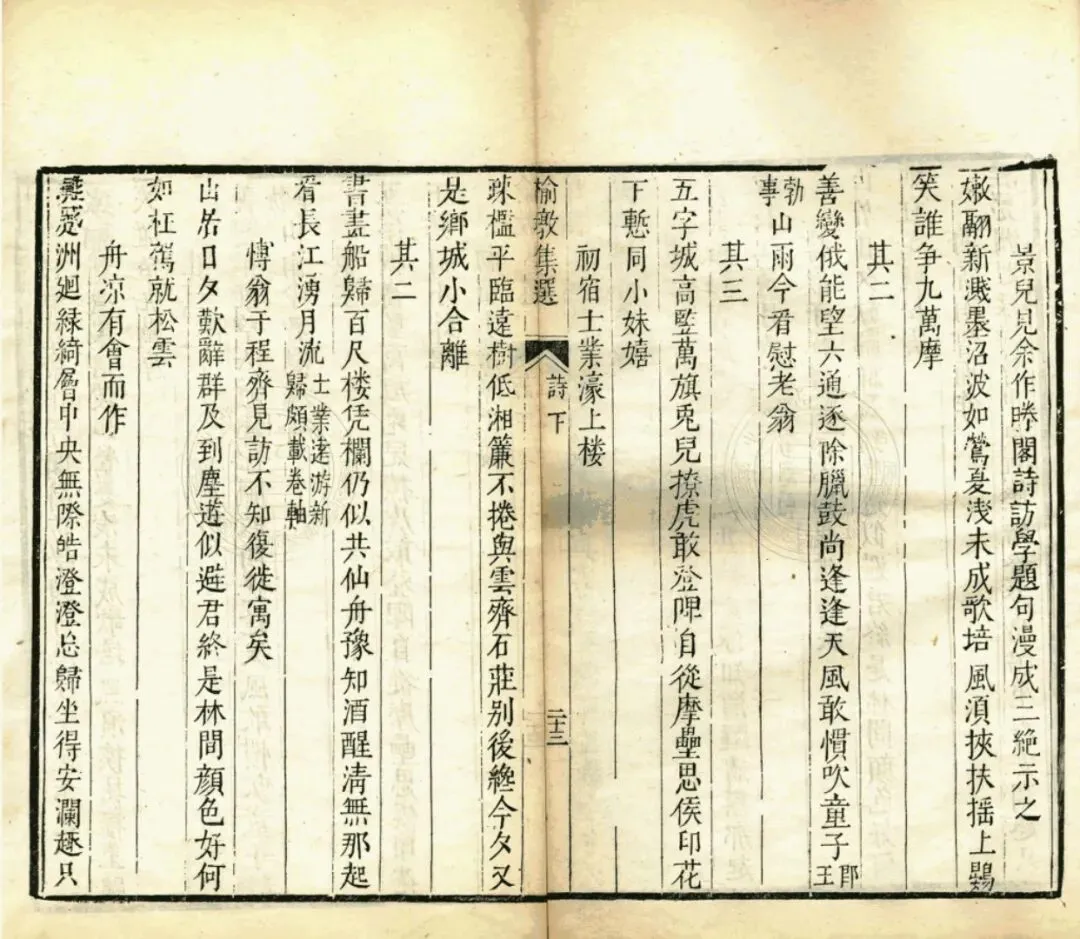 景兒見余作勝閣詩訪學題句漫成三絶示之
嫩翮新濺墨沼波如鶯憂淺未成歌培風湏挾扶摇上鷃
笑誰争九萬摩
其二
善變俄能望六通逐除臘鼓尚逢逢天風敢慣吹童子王郎
勃事山雨今看慰老翁
其三
五字城高監萬旗兎兒撩虎敢登陴自從摩壘思侯印花
下慙同小妹嬉
初宿士業濠上楼
榆墩集選 詩下 二十三
疎檻平臨遠樹低湘簾不捲與雲齊石莊别後纔今夕又
是鄉城小合離
其二
書畫船歸百尺楼凭欄仍似共仙舟豫知酒醒清無那起
看長江湧月流士業逺游新歸頗載卷軸
慱翁于程齊見訪不知復徙寓矣
山居日夕歎辭群及到塵逰似避君終是林間顔色好何
如枉駕就松雲
舟凉有會而作
洲廻緑綺層中央無際皓澄澄忘歸坐得安瀾趣只